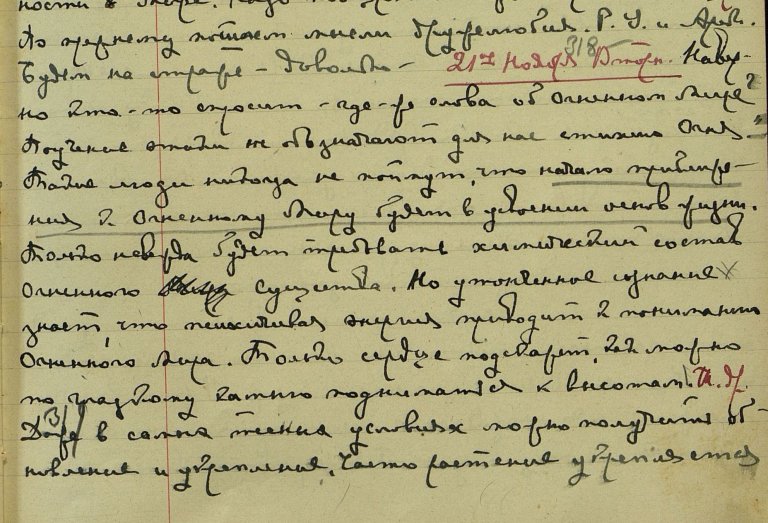 По прежнему пошлем мысли дружелюбия. Р. У. и Арж.
Будем на страже – довольно – 21ое Ноября Вторн. Навер-
но кто-то спросит – где-же слова об Огненном Мире?
Поучение этики не обозначают для нас стихию Огня –"
Такие люди никогда не поймут, что начало приближе-
ния к Огненному Миру будет в усвоении основ жизни.
Только невежда будет требовать химический состав
Огненного Существа. Но утонченное сознание
знает, что психическая энергия приводит к пониманию
Огненного Мира. Только сердце подскажет, как можно
по гладкому камню подниматься к высотам. Т. д.
318
Даже в самых тесных условиях можно получить об-
новление и укрепление. Часто растение укрепляется